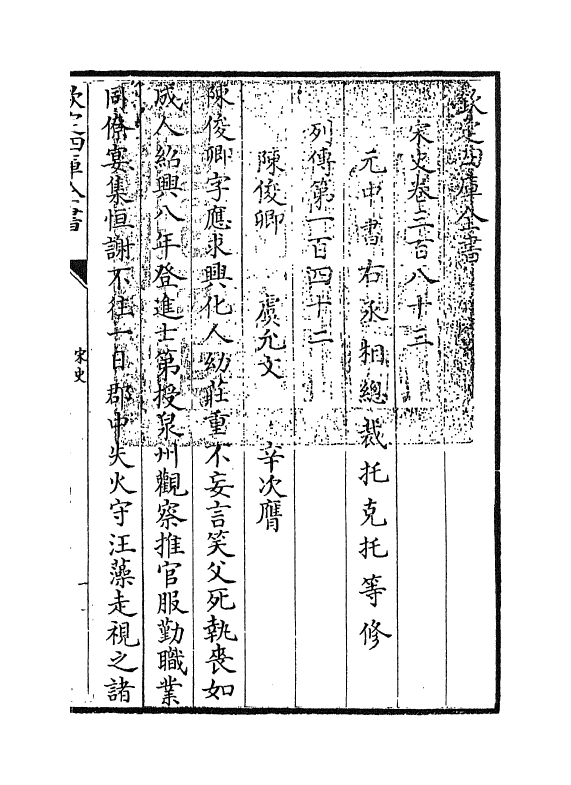 欽定四庫全書
宋史卷三百八十三
元中書右丞相總裁托克托等修
列傳第一百四十二
陳俊卿 虞允文 辛次膺
陳俊卿字應求興化人幼莊重不妄言笑父死執喪如
成人紹興八年登進士第授泉州觀察推官服勤職業
同僚宴集恒謝不往一日郡中失火守汪藻走視之諸
欽定四庫全書
宋史